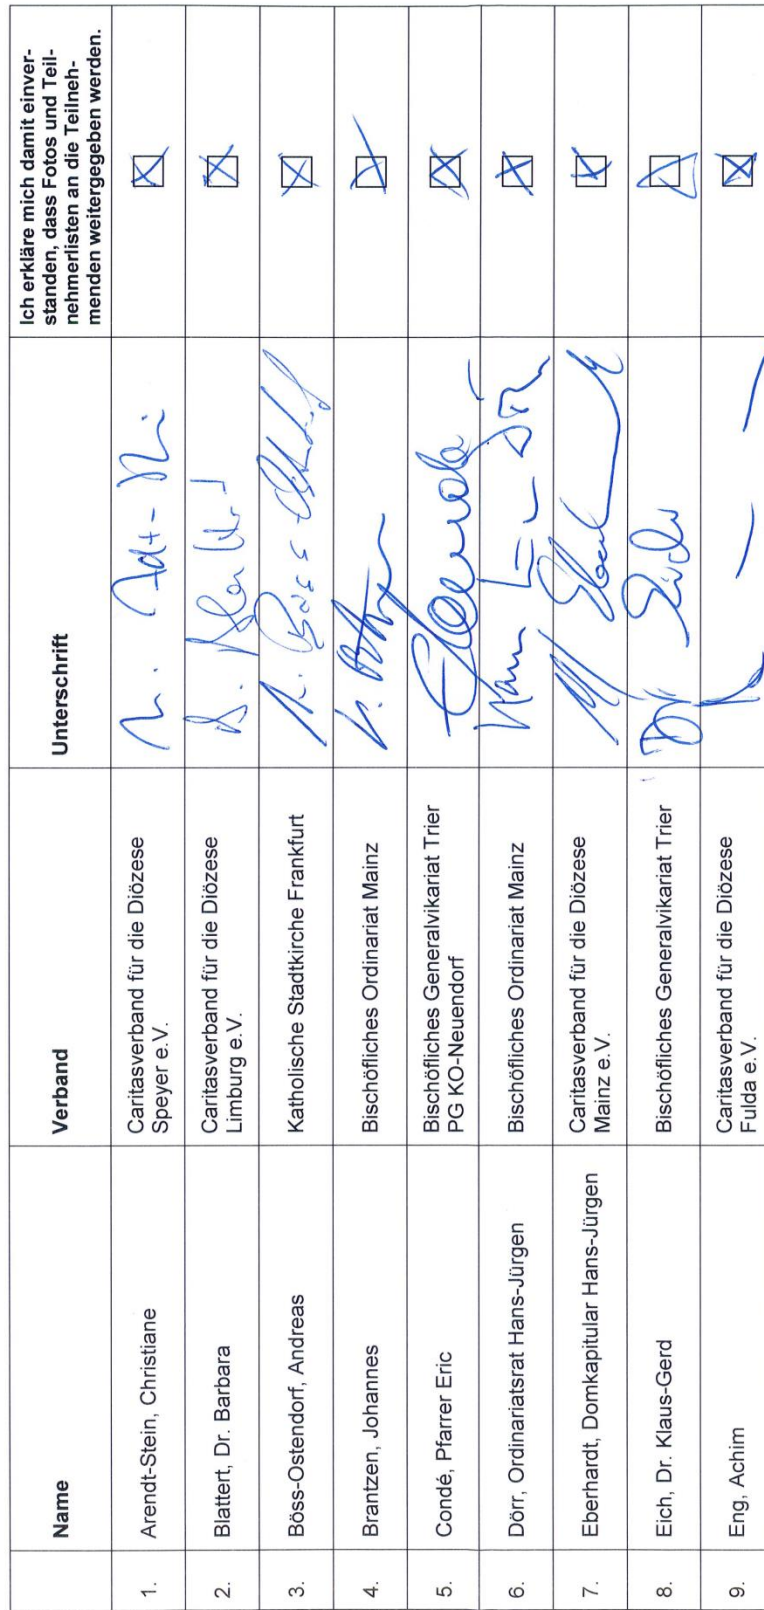 Name
Verband
Unterschrift
Ich erkläre mich damit einver-
standen, dass Fotos und Teil-
nehmerlisten an die Teilneh-
menden weitergegeben werden.
1.
Arendt-Stein, Christiane
Caritasverband für die Diözese
Speyer e.V.
2.
Blattert, Dr. Barbara
Caritasverband für die Diözese
Limburg e.V.
3.
Böss-Ostendorf, Andreas
Katholische Stadtkirche Frankfurt
4.
Brantzen, Johannes
Bischöfliches Ordinariat Mainz
5.
Condé, Pfarrer Eric
Bischöfliches Generalvikariat Trier
PG KO-Neuendorf
6.
Dörr, Ordinariatsrat Hans-Jürgen
Bischöfliches Ordinariat Mainz
7.
Eberhardt, Domkapitular Hans-Jürgen
Caritasverband für die Diözese
Mainz e.V.
8.
Eich, Dr. Klaus-Gerd
Bischöfliches Generalvikariat Trier
9.
Eng, Achim
Caritasverband für die Diözese
Fulda e.V.